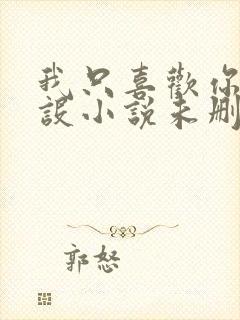 我只喜歡你
設小說未刪
郭怒